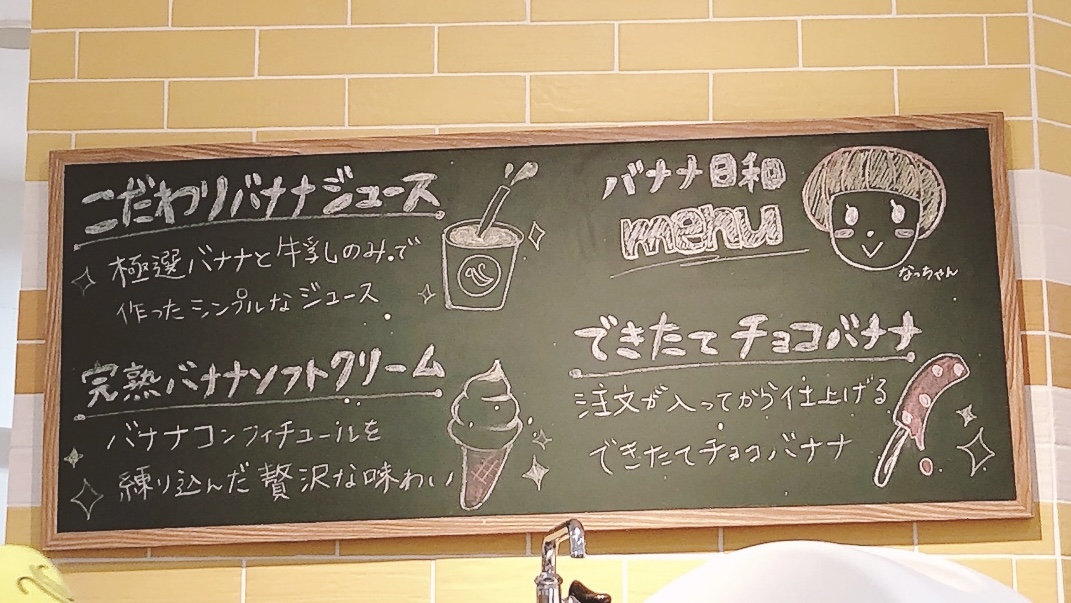 こだわりバナナジュース
極選バナナと牛乳のみで
作ったシンプルなジュース
完熟バナナソフトクリーム
バナナコンフィチュールを
練り込んだ贅沢な味わい
バナナ日和
menu
なっちゃん
できたてチョコバナナ
注文が入ってから仕上げる
できたてチョコバナナ